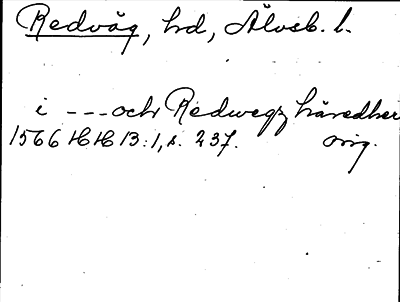 Redväg, hd, Älvsb. l.
i --- och Redwegz häredher
1566 HH 13:1, s. 237. orig.